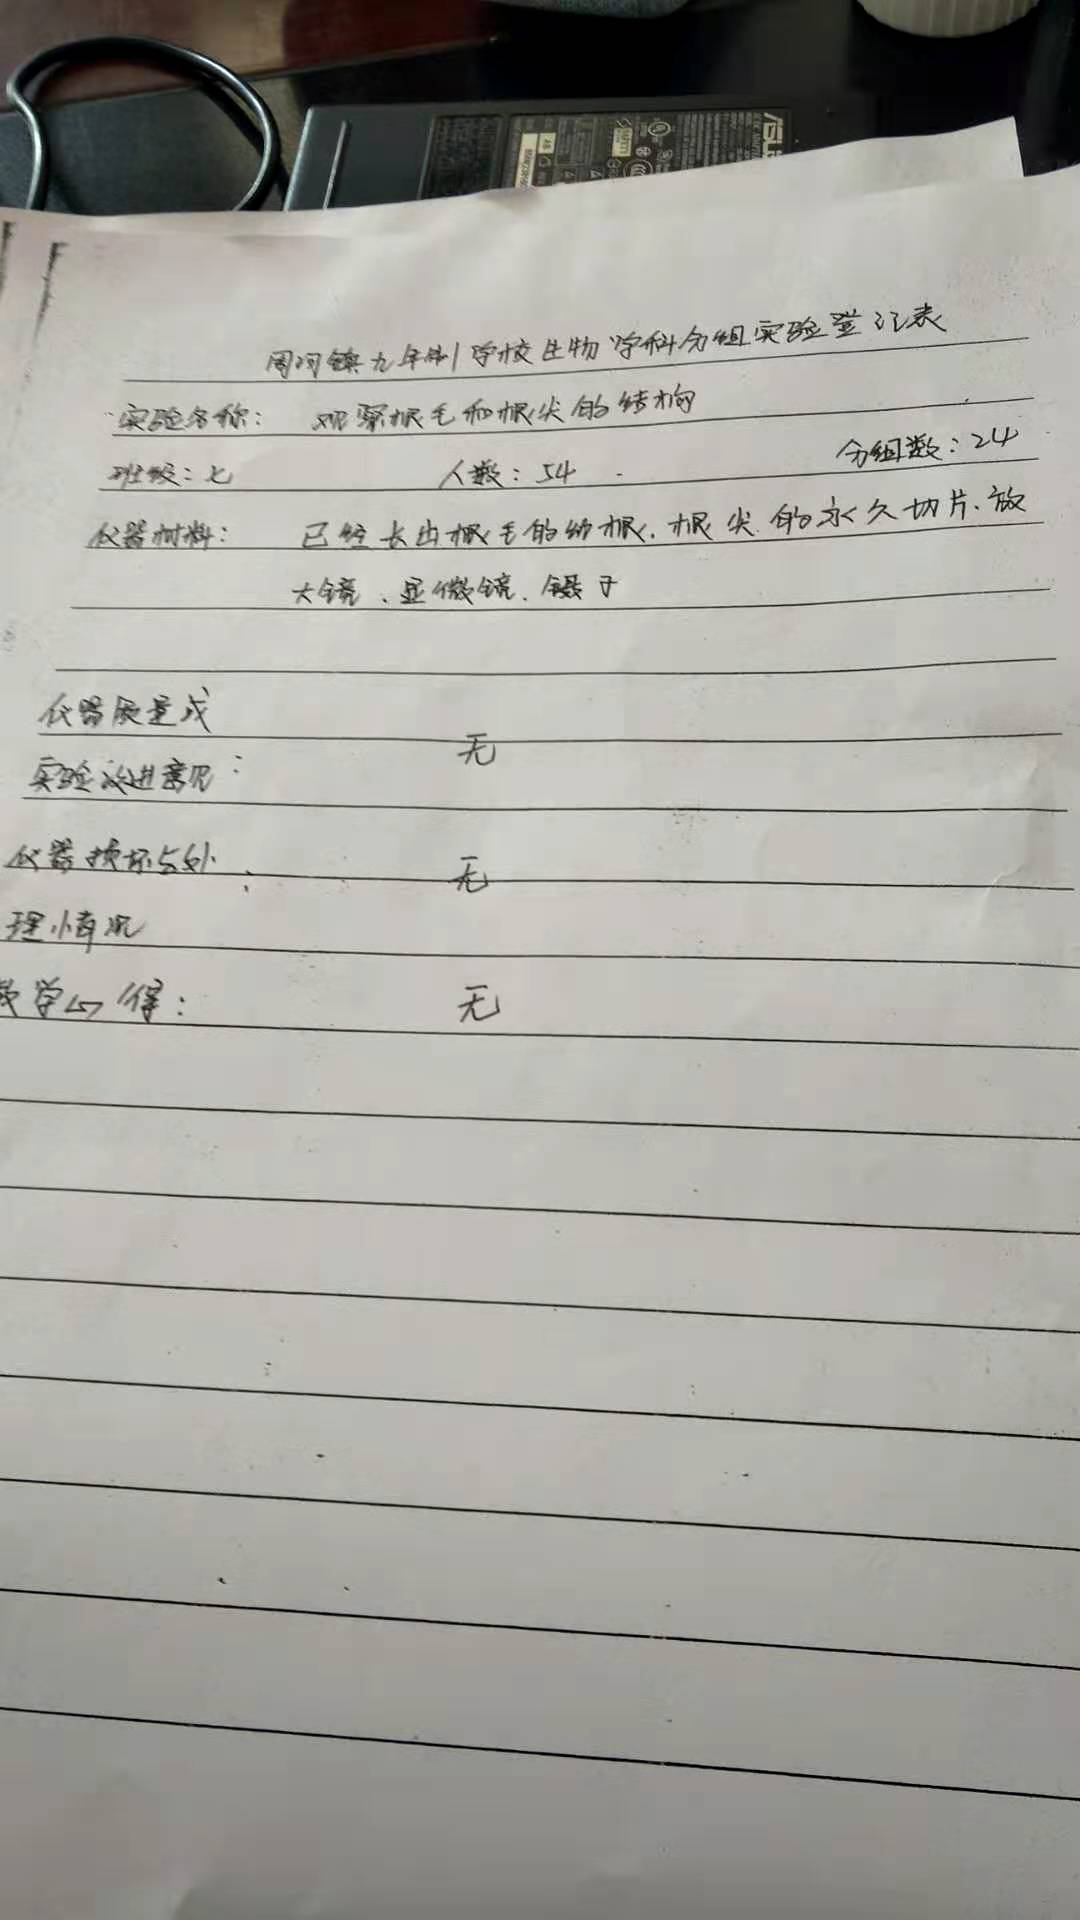 ASUS
周河镇九年制学校生物学科分组实验登记表
实验名称: 观察根毛和根尖的结构
班级:七 人数:54 分组数:24
仪器材料: 已经长出根毛的幼根、根尖的永久切片、放
大镜、显微镜、镊子
仪器质量或
实验改进意见: 无
仪器损坏与处: 无
理情况
教学心得: 无